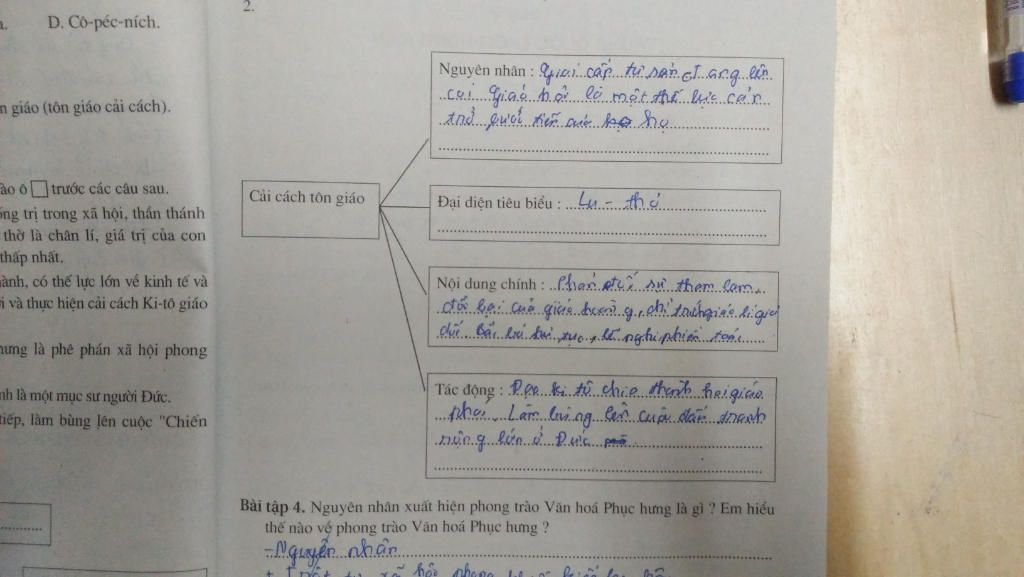 D. Cô-péc-ních.
n giáo (tôn giáo cải cách).
ào ô trước các câu sau.
ống trị trong xã hội, thần thánh
thờ là chân lí, giá trị của con
thấp nhất.
ành, có thế lực lớn về kinh tế và
i và thực hiện cải cách Ki-tô giáo
hưng là phê phán xã hội phong
nh là một mục sư người Đức.
tiếp, làm bùng lên cuộc "Chiến
2.
Nguyên nhân : Giai cấp tư sản đang lên
coi Giáo hội là một thế lực cản
trở bước tiến của họ
Cải cách tôn giáo
Đại diện tiêu biểu : Lu - thơ
Nội dung chính : Phản đối sự tham lam,
đồi bại của giáo hoàng, chỉ trích giáo lí giả
dối. Bãi bỏ thủ tục, lễ nghi phiền toái
Tác động : Đạo ki tô chia thành hai giáo
phái. Làm bùng lên cuộc đấu tranh
rộng lớn ở Đức
Bài tập 4. Nguyên nhân xuất hiện phong trào Văn hoá Phục hưng là gì ? Em hiểu
thế nào về phong trào Văn hoá Phục hưng ?
- Nguyên nhân